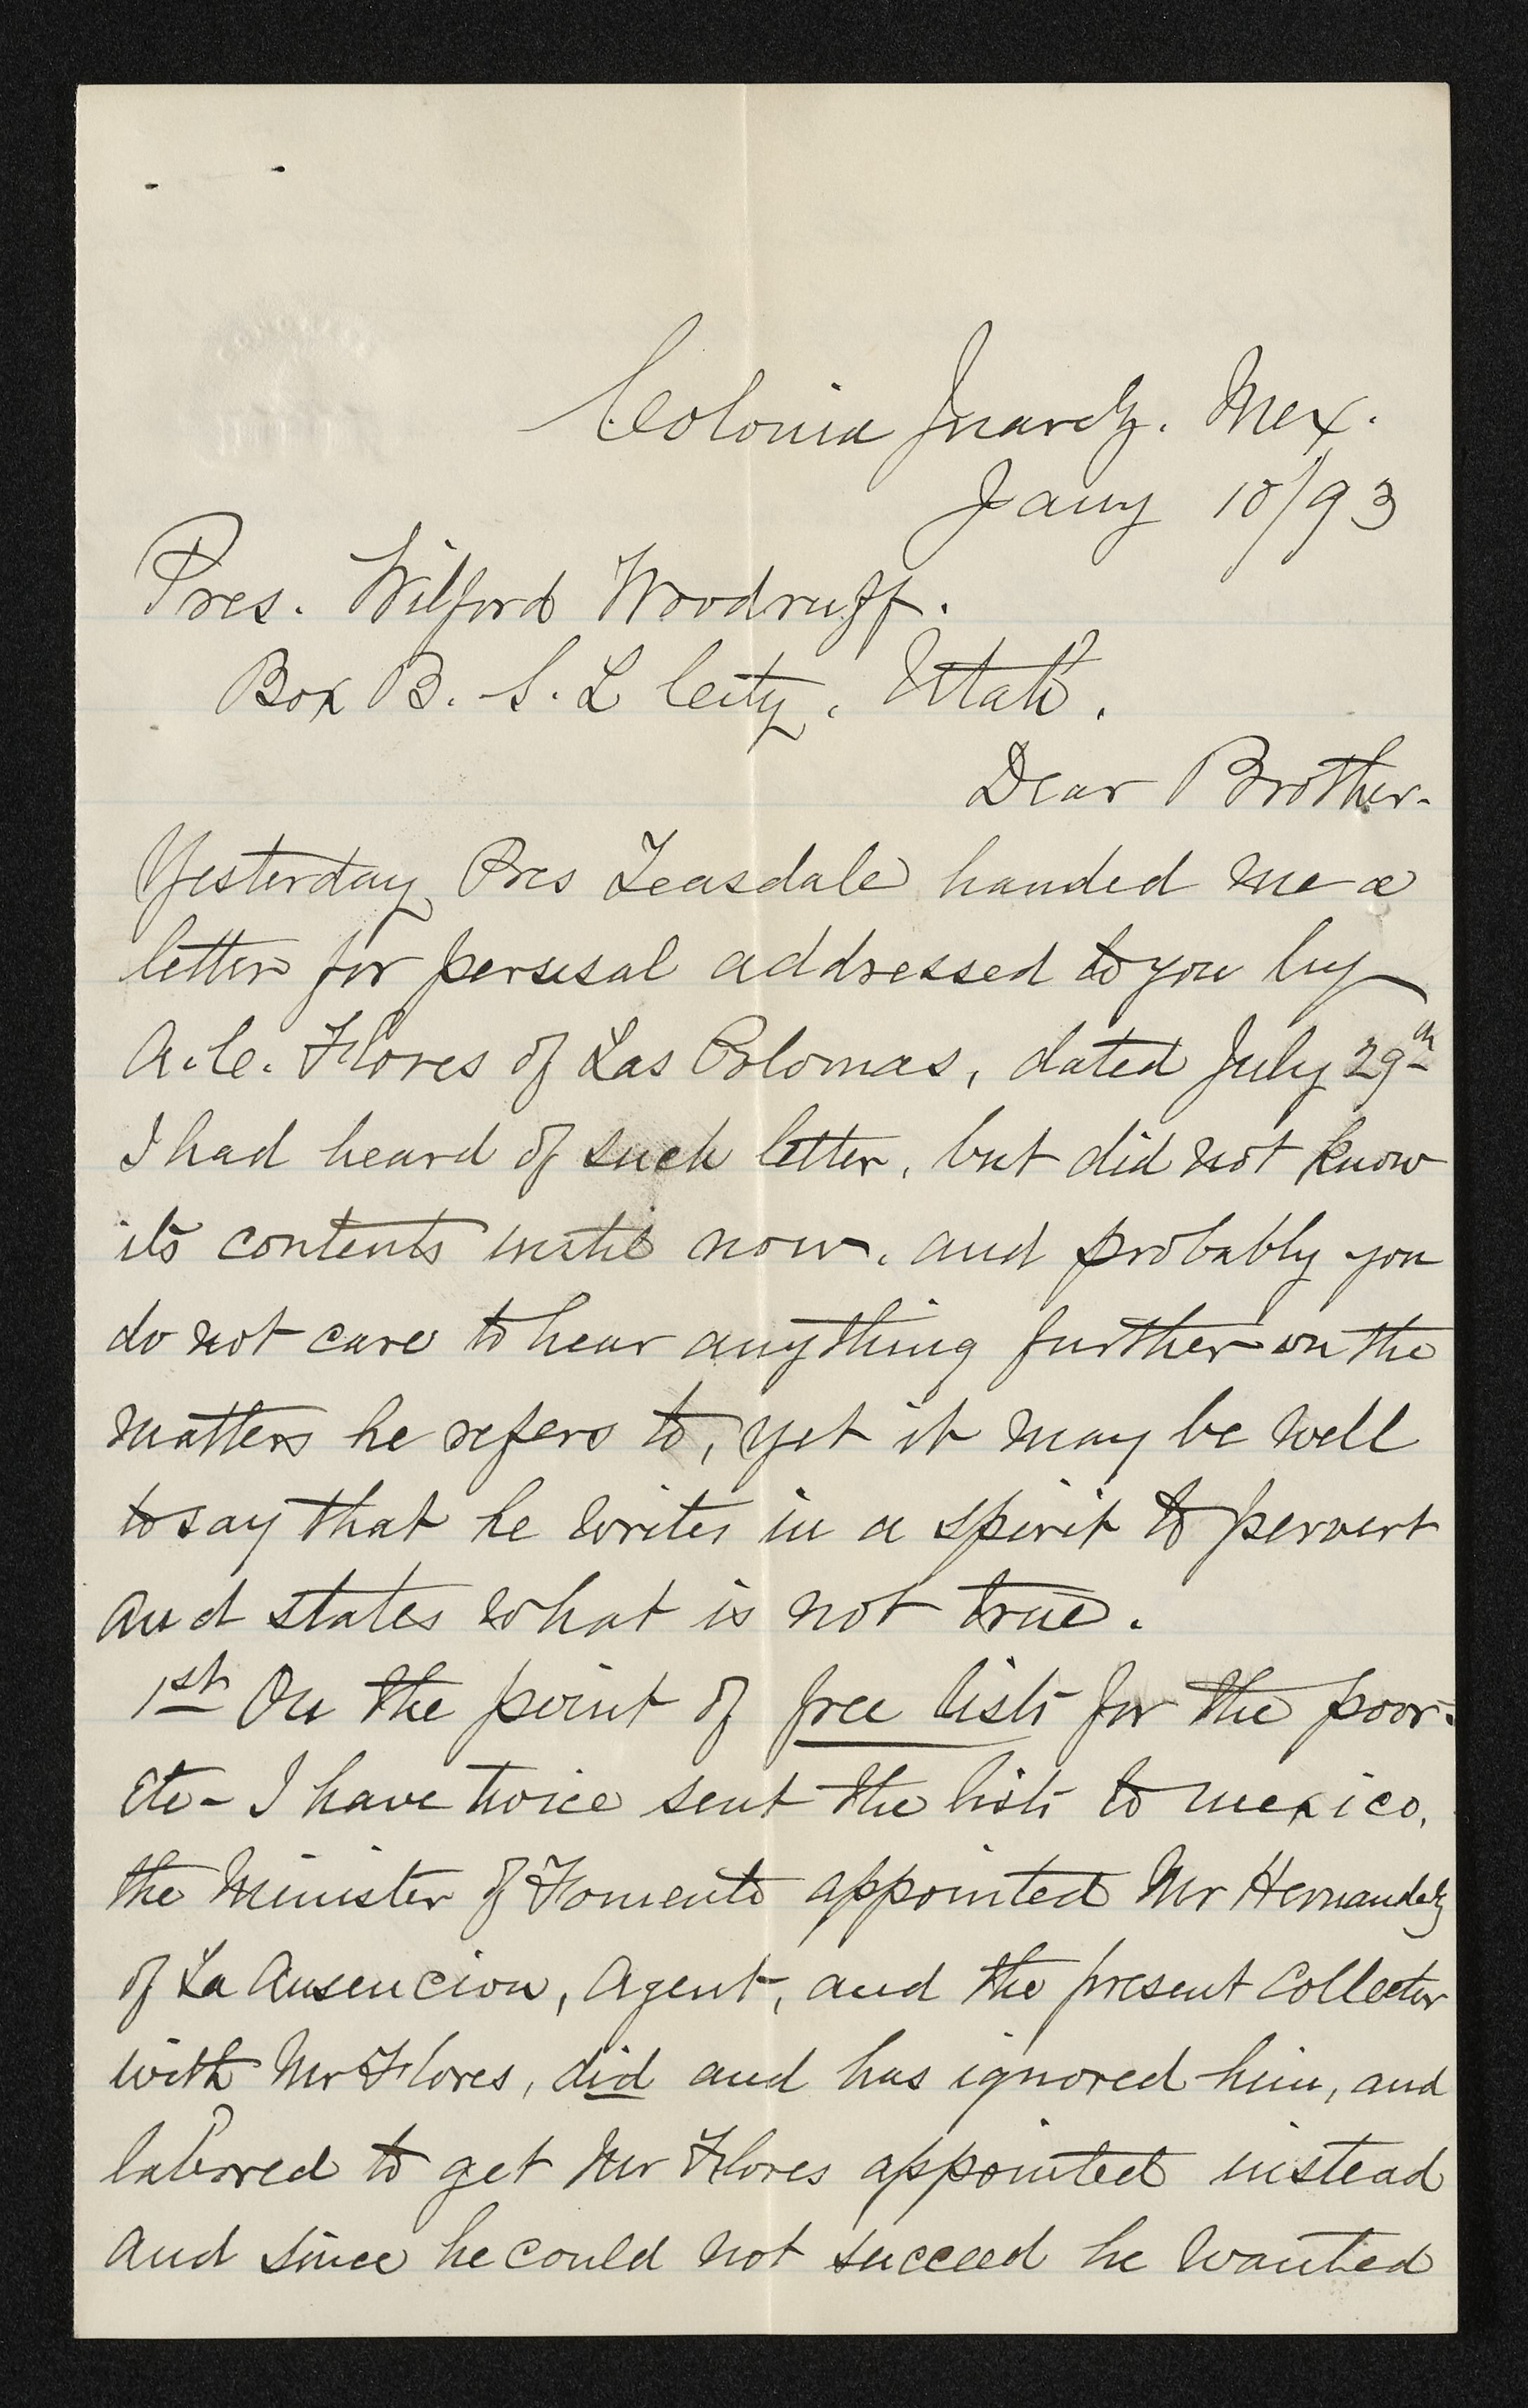 Colonia Juardz. Mex.
Jany 10/93
Pres. Wilford Woodruff.
Box B. S. L City, Utah.
Dear Brother.
Yesterday Pres Teasdale handed me a
letter for perusal addressed to you by
A. C. Flores of Las Polomas, dated July 29th
I had heard of such letter, but did not know
its contents until now. and probably you
do not care to hear anything further on the
matters he refers to, yet it may be well
to say that he writes in a spirit to pervert
and states what is not true.
1st On the point of free lists for the poor-
Etc- I have twice sent the lists to mexico,
the Minister of Fomento appointed Mr Hernandez
of La Ausencion, Agent, and the present Collector
with Mr Flores, did and has ignored him, and
labored to get Mr Flores appointed instead
and since he could not succeed he wanted